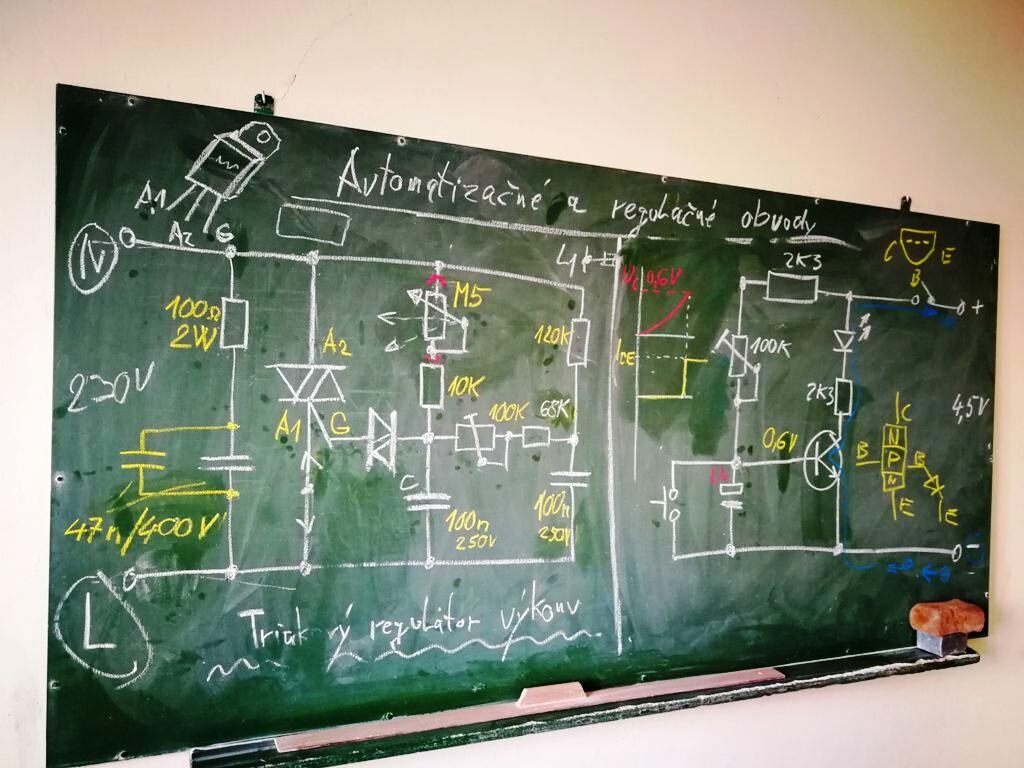 Automatizačné a regulačné obvody
A1
A2
G
N
100Ω
2W
230V
47n/400V
L
A2
A1
G
M5
10K
100K
68K
120K
C
100n
250V
100n
250V
Triakový regulátor výkonu
0,6V
2K3
100K
2K3
0,6V
C
B
E
+
4,5V
C
N
P
N
B
B
E
E
-